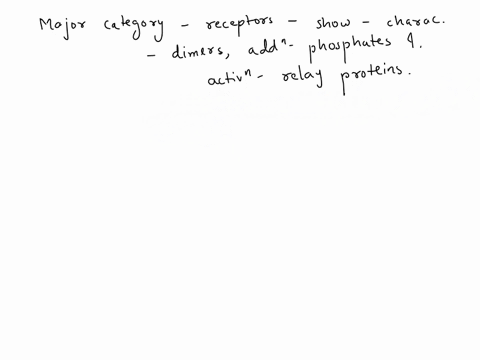 Major category - receptors - show - charac.
- dimers, addⁿ- phosphates &.
activⁿ- relay proteins.